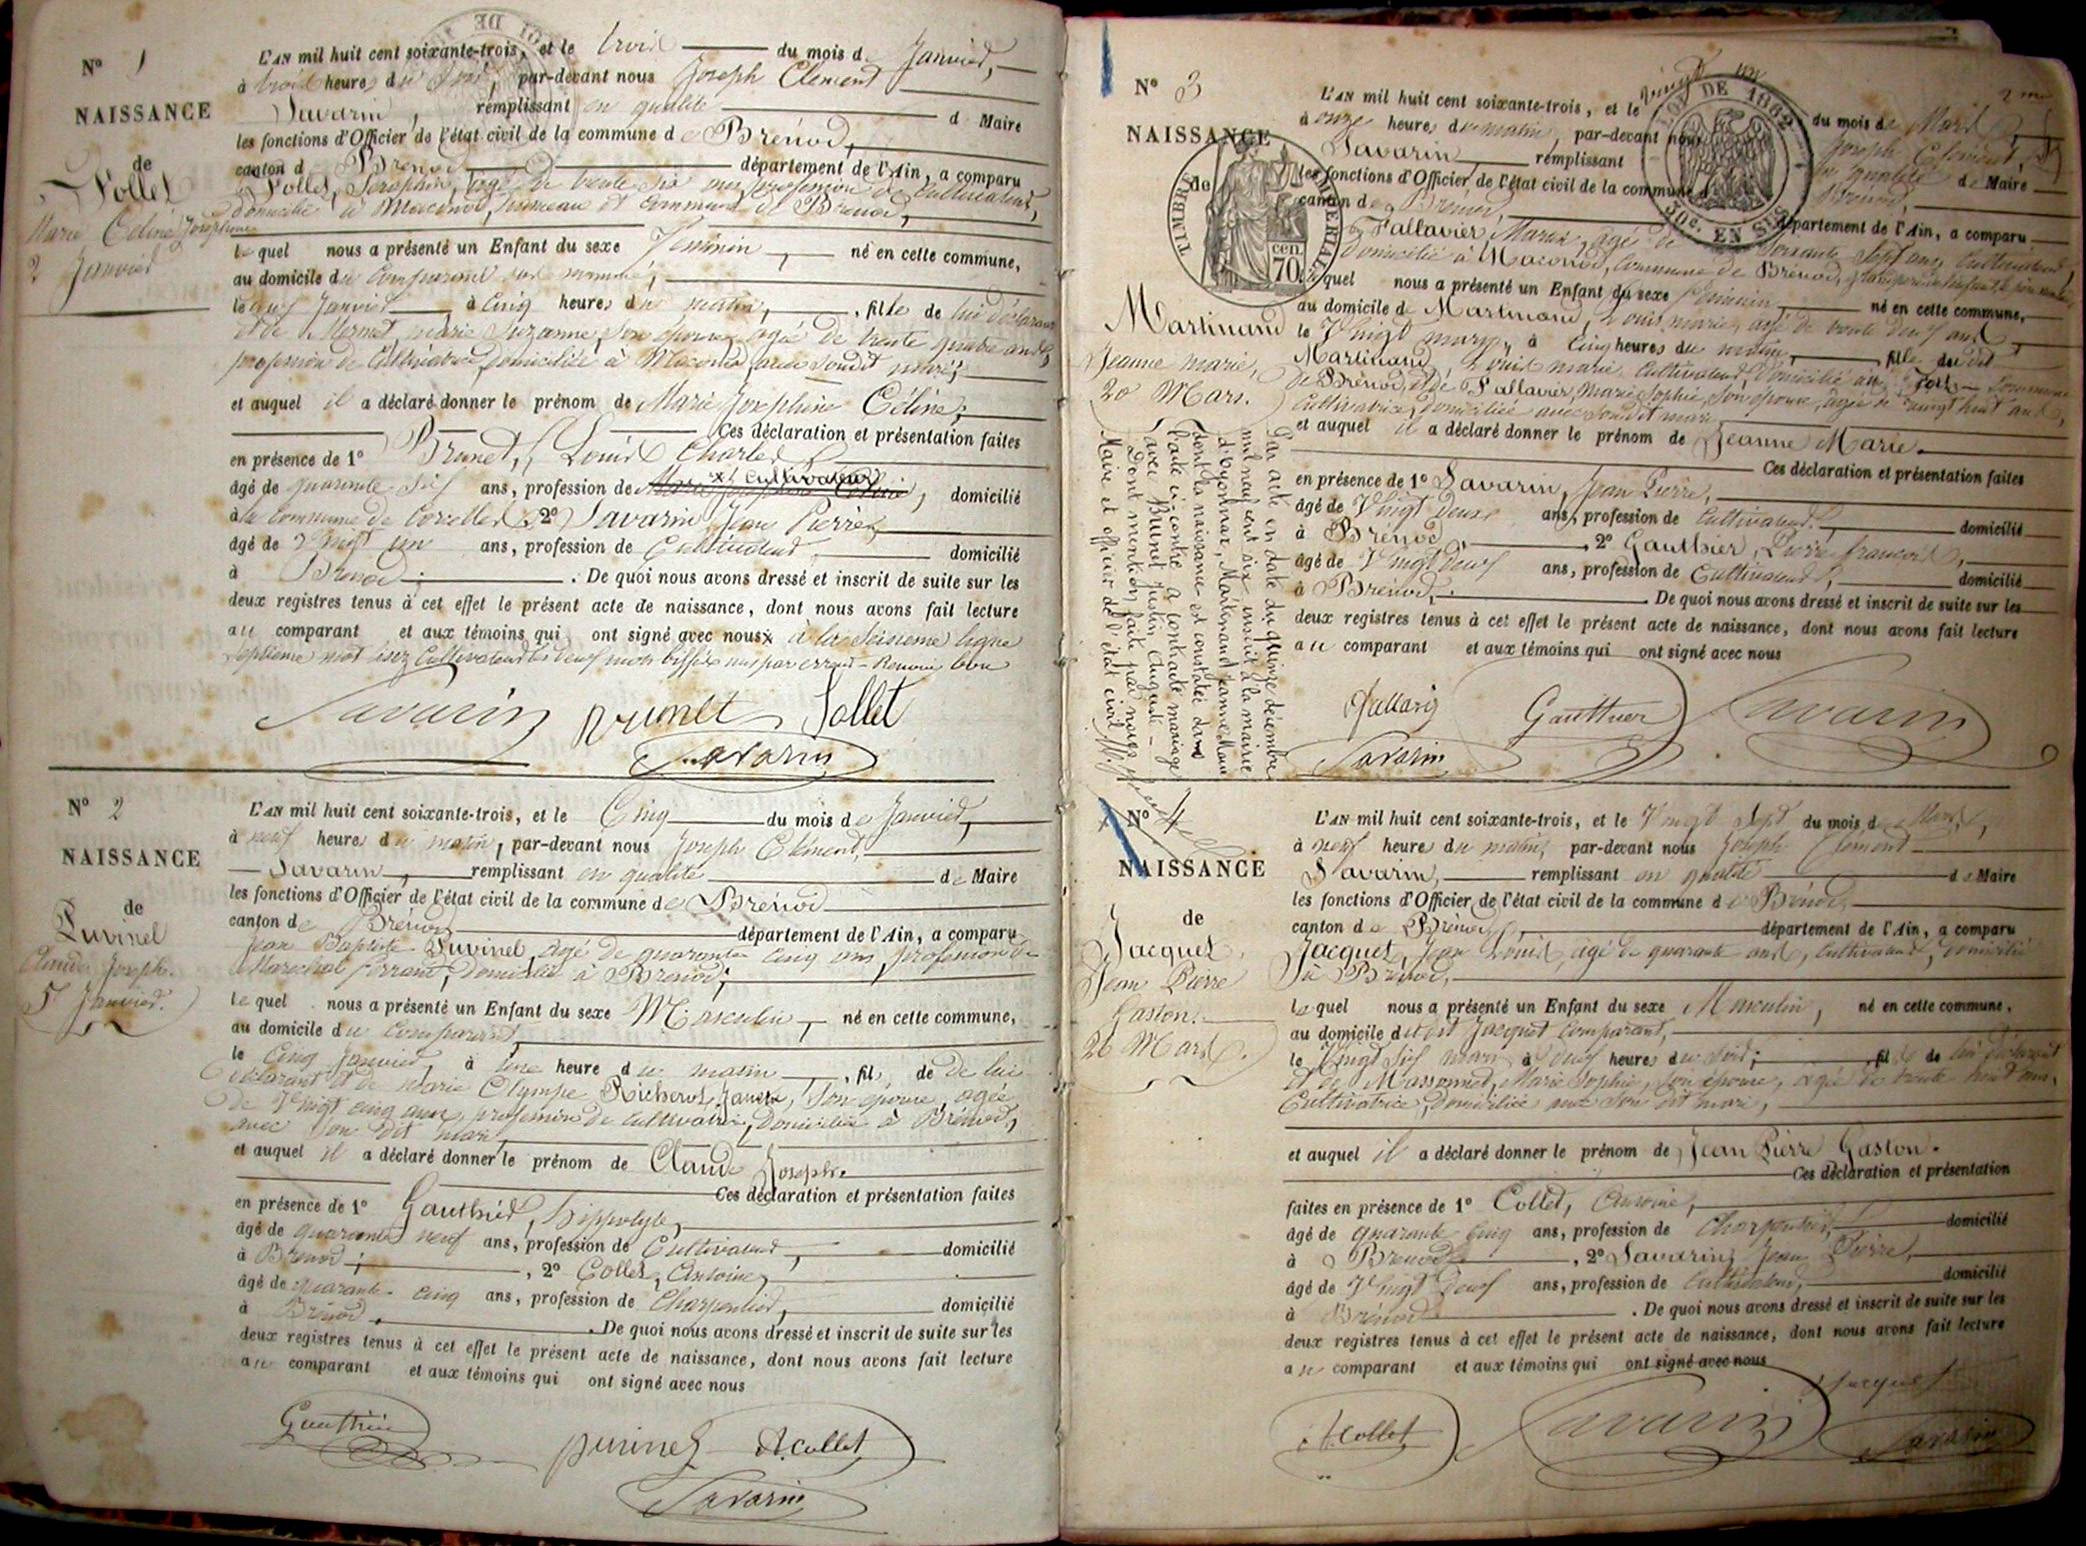 N° 1
NAISSANCE
de
Sollet
Marie Céline Joséphine
2 Janvier
L'AN mil huit cent soixante-trois, et le trois du mois de Janvier,
à trois heures du soir, par-devant nous Joseph Clément
Savarin, remplissant en qualité de Maire
les fonctions d'Officier de l'état civil de la commune de Brénod,
canton de Brénod département de l'Ain, a comparu
Sollet, Séraphin, âgé de trente six ans, profession de cultivateur,
domicilié à Maconod, hameau et commune de Brénod,
lequel nous a présenté un Enfant du sexe Féminin, né en cette commune,
au domicile du comparant
le deux Janvier à cinq heures du matin, fille de lui déclarant
et de Mermet, marie Suzanne, son épouse, agée de trente quatre ans,
profession de Cultivatrice, domiciliée à Maconod, avec son dit mari,
et auquel il a déclaré donner le prénom de Marie Joséphine Céline,
Ces déclaration et présentation faites
en présence de 1° Brunet, Louis Charles
âgé de quarante six ans, profession de x cultivateur, domicilié
à la commune de Corcelles 2° Savarin Jean Pierre,
âgé de vingt un ans, profession de Cultivateur domicilié
à Brénod. De quoi nous avons dressé et inscrit de suite sur les
deux registres tenus à cet effet le présent acte de naissance, dont nous avons fait lecture
au comparant et aux témoins qui ont signé avec nous x à la seizième ligne
septième mot lisez Cultivateur les mots biffés nuls par erreur
Savarin Brunet Sollet
Savarin
N° 2
NAISSANCE
de
Puvinel
Claude Joseph.
5 Janvier.
L'AN mil huit cent soixante-trois, et le Cinq du mois de Janvier,
à neuf heures du matin, par-devant nous Joseph Clément,
Savarin, remplissant en qualité de Maire
les fonctions d'Officier de l'état civil de la commune de Brénod
canton de Brénod département de l'Ain, a comparu
Jean Baptiste Puvinel, âgé de quarante cinq ans, profession de
Maréchal ferrant, domicilié à Brénod;
lequel nous a présenté un Enfant du sexe Masculin, né en cette commune,
au domicile du comparant,
le cinq Janvier, à une heure du matin, fils de de lui
déclarant et de Marie Olympe Richerot Janet, son épouse, agée
de Vingt cinq ans, profession de cultivatrice, domiciliée à Brénod,
avec son dit mari,
et auquel il a déclaré donner le prénom de Claude Joseph.
Ces déclaration et présentation faites
en présence de 1° Gauthier, hippolyte,
âgé de quarante neuf ans, profession de Cultivateur, domicilié
à Brénod; 2° Collet, Antoine,
âgé de quarante-cinq ans, profession de Charpentier, domicilié
à Brénod. De quoi nous avons dressé et inscrit de suite sur les
deux registres tenus à cet effet le présent acte de naissance, dont nous avons fait lecture
au comparant et aux témoins qui ont signé avec nous
Gauthier Puvinel A. Collet
Savarin
N° 3
NAISSANCE
de
TIMBRE IMPERIAL
70 cen.
LOI DE 1862
30c. EN SUS
2me
Martinand
Jeanne marie,
20 Mars.
L'AN mil huit cent soixante-trois, et le vingt un du mois de Mars,
à onze heures du matin, par-devant nous Joseph Clément,
Savarin, remplissant en qualité de Maire
les fonctions d'Officier de l'état civil de la commune de Brénod,
canton de Brénod, département de l'Ain, a comparu
Pallavier Marin, agé de soixante sept ans, cultivateur,
domicilié à Maconod, commune de Brénod,
lequel nous a présenté un Enfant du sexe Féminin né en cette commune,
au domicile de Martinand, Louis marie, agé de trente deux ans,
le Vingt mars, à cinq heures du matin, fille du dit
Martinand Louis marie, cultivateur, domicilié commune
de Brénod, et de Pallavier, Marie Sophie, son épouse, agée de vingt huit ans,
Cultivatrice, domiciliée avec son dit mari
et auquel il a déclaré donner le prénom de Jeanne Marie.
Ces déclaration et présentation faites
en présence de 1° Savarin, Jean Pierre,
âgé de Vingt deux ans, profession de Cultivateur, domicilié
à Brénod, 2° Gauthier, Pierre françois,
âgé de Vingt deux ans, profession de Cultivateur, domicilié
à Brénod, De quoi nous avons dressé et inscrit de suite sur les
deux registres tenus à cet effet le présent acte de naissance, dont nous avons fait lecture
au comparant et aux témoins qui ont signé avec nous
Gauthier Savarin
Savarin
Par acte en date du quinze décembre
mil neuf cent six inscrit à la mairie
d'Oyonnax, Martinand Jeanne Marie
dont la naissance est constatée dans
l'acte ci-contre a contracté mariage
avec Brunet Justin Auguste
Dont mention faite par nous
Maire et officier de l'état civil
N° 4
NAISSANCE
de
Jacquet,
Jean Pierre
Gaston.
26 Mars.
L'AN mil huit cent soixante-trois, et le Vingt Sept du mois de Mars,
à neuf heures du matin, par-devant nous Joseph Clément
Savarin, remplissant en qualité de Maire
les fonctions d'Officier de l'état civil de la commune de Brénod,
canton de Brénod, département de l'Ain, a comparu
Jacquet, Jean Louis, agé de quarante ans, Cultivateur, domicilié
à Brénod,
lequel nous a présenté un Enfant du sexe Masculin, né en cette commune,
au domicile dudit Jacquet comparant,
le Vingt six mars à heures du soir; fils de lui déclarant
et de Massonnet, Marie Sophie, son épouse, agée de trente huit ans,
Cultivatrice, domiciliée avec son dit mari,
et auquel il a déclaré donner le prénom de Jean Pierre Gaston.
Ces déclaration et présentation
faites en présence de 1° Collet, Antoine,
âgé de quarante cinq ans, profession de Charpentier, domicilié
à Brénod, 2° Savarin, Jean Pierre,
âgé de Vingt deux ans, profession de Cultivateur, domicilié
à Brénod. De quoi nous avons dressé et inscrit de suite sur les
deux registres tenus à cet effet le présent acte de naissance, dont nous avons fait lecture
au comparant et aux témoins qui ont signé avec nous
Jacquet
A. Collet Savarin Savarin